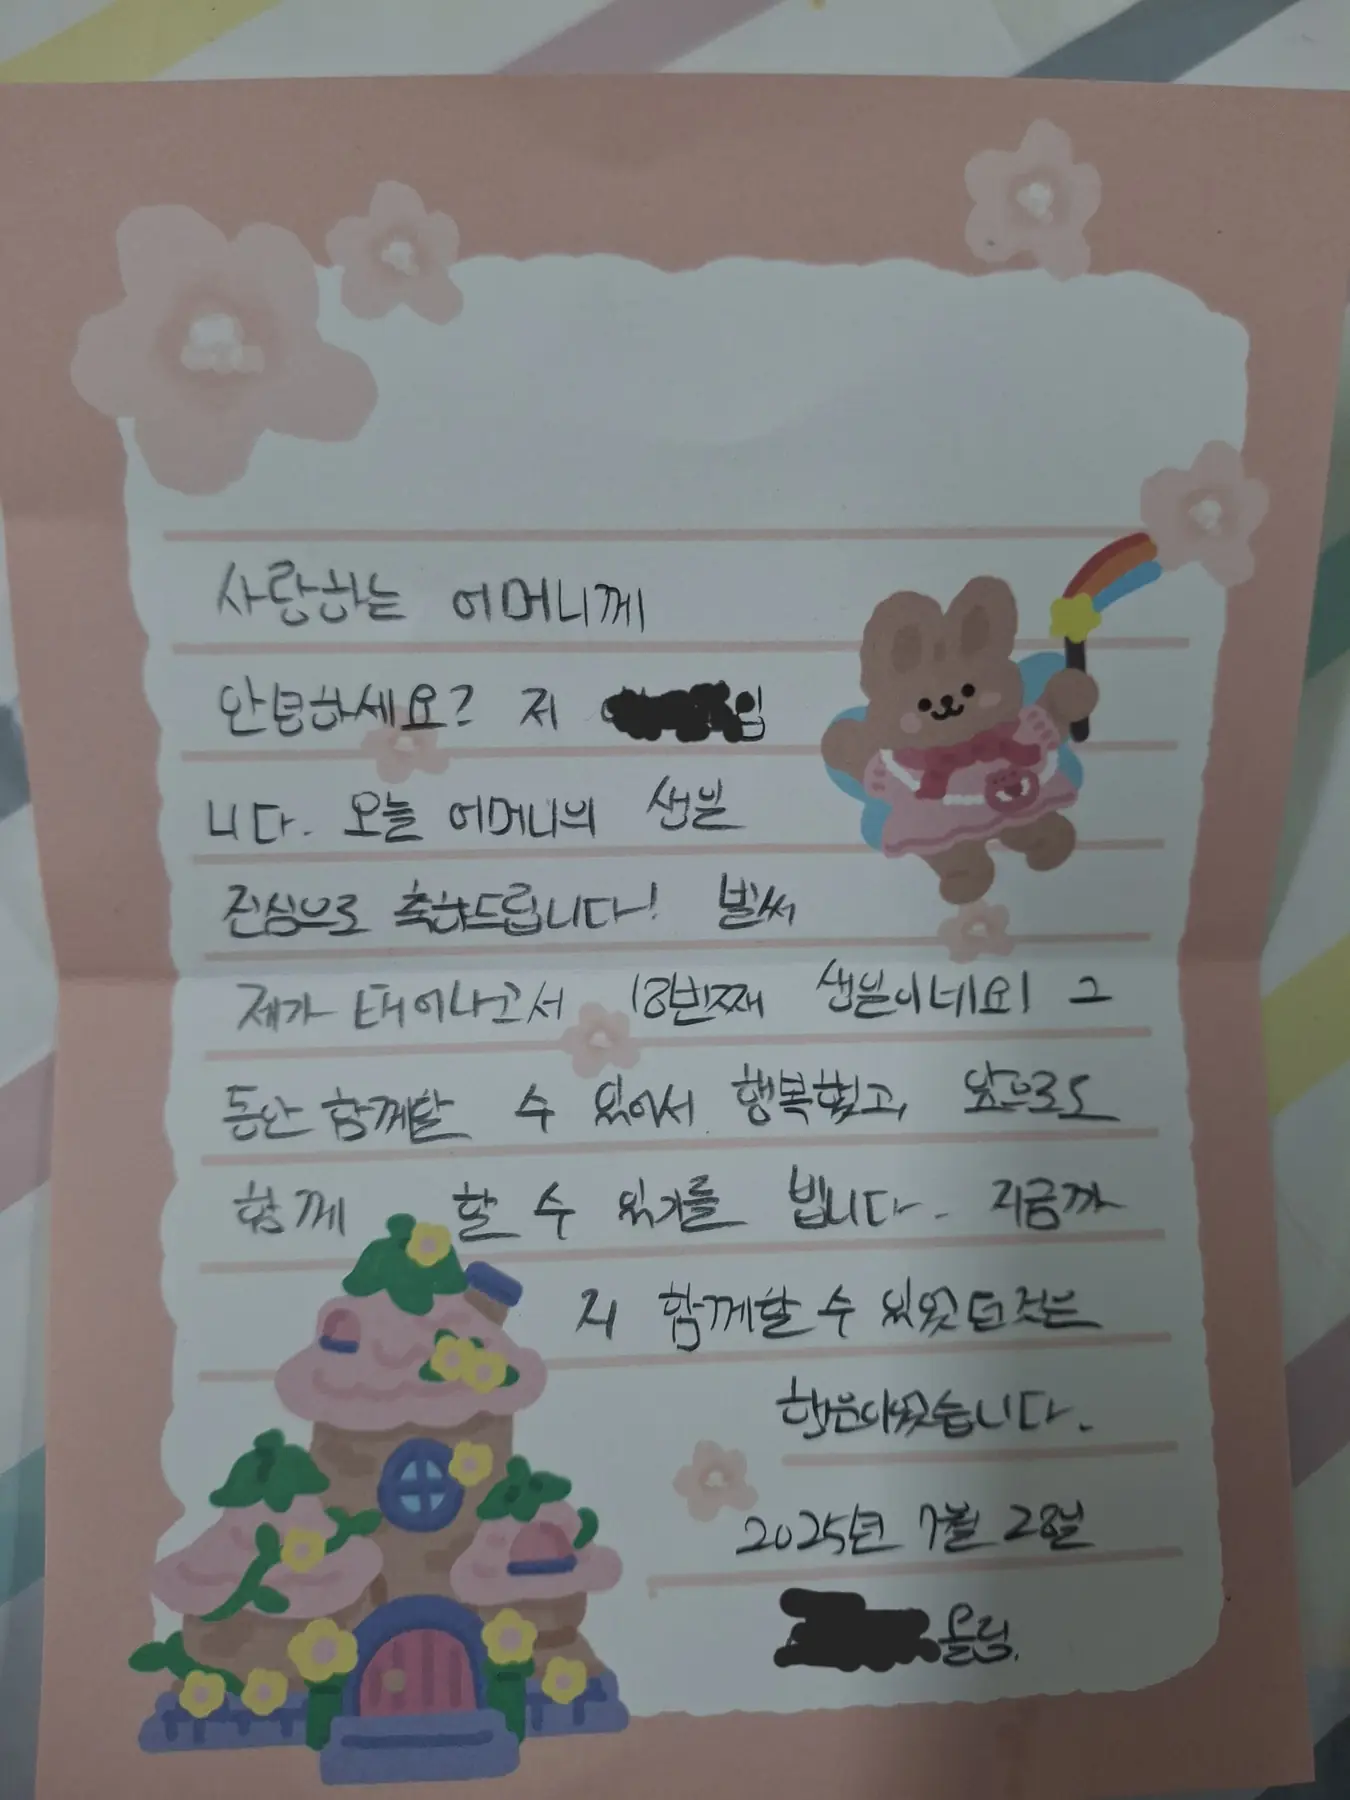 사랑하는 어머니께
안녕하세요? 저 입
니다. 오늘 어머니의 생신
진심으로 축하드립니다! 벌써
제가 태어나고서 18번째 생신이네요! 그
동안 함께할 수 있어서 행복했고, 앞으로도
함께 할 수 있기를 빕니다. 지금까
지 함께할 수 있었던것은
행운이었습니다.
2025년 7월 28일
올림.